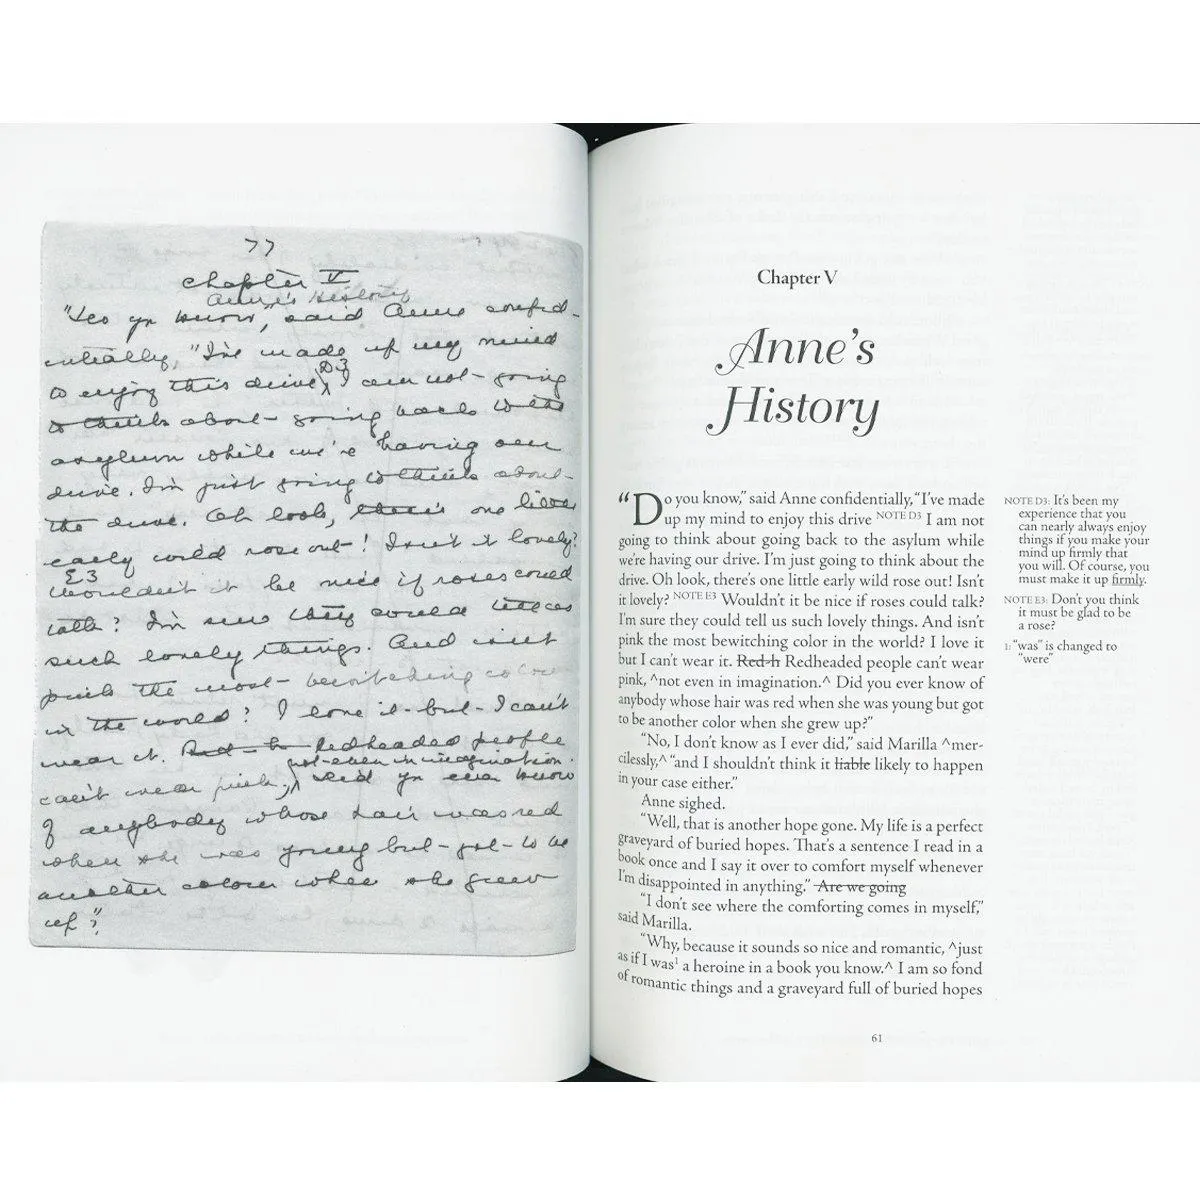 77
Chapter V
Anne's History
"Do you know," said Anne confid-
entially, "I've made up my mind
to enjoy this drive D3 I am not going
to think about going back to the
asylum while we're having our
drive. I'm just going to think about
the drive. Oh look, there's one little
early wild rose out! Isn't it lovely?
E3
Wouldn't it be nice if roses could
talk? I'm sure they could tell us
such lovely things. And isn't
pink the most bewitching colour
in the world? I love it but I can't
wear it. Red h Redheaded people
not even in imagination.
can't wear pink, Did you ever know
of anybody whose hair was red
when she was young but got to be
another colour when she grew
up?"
Chapter V
Anne's
History
"Do you know," said Anne confidentially, "I've made
up my mind to enjoy this drive NOTE D3 I am not
going to think about going back to the asylum while
we're having our drive. I'm just going to think about the
drive. Oh look, there's one little early wild rose out! Isn't
it lovely? NOTE E3 Wouldn't it be nice if roses could talk?
I'm sure they could tell us such lovely things. And isn't
pink the most bewitching color in the world? I love it
but I can't wear it. Red-h Redheaded people can't wear
pink, ^not even in imagination.^ Did you ever know of
anybody whose hair was red when she was young but got
to be another color when she grew up?"
"No, I don't know as I ever did," said Marilla ^mer-
cilessly,^ "and I shouldn't think it liable likely to happen
in your case either."
Anne sighed.
"Well, that is another hope gone. My life is a perfect
graveyard of buried hopes. That's a sentence I read in a
book once and I say it over to comfort myself whenever
I'm disappointed in anything." Are we going
"I don't see where the comforting comes in myself,"
said Marilla.
"Why, because it sounds so nice and romantic, ^just
as if I was1 a heroine in a book you know.^ I am so fond
of romantic things and a graveyard full of buried hopes
NOTE D3: It's been my
experience that you
can nearly always enjoy
things if you make your
mind up firmly that
you will. Of course, you
must make it up firmly.
NOTE E3: Don't you think
it must be glad to be
a rose?
1: "was" is changed to
"were"
61